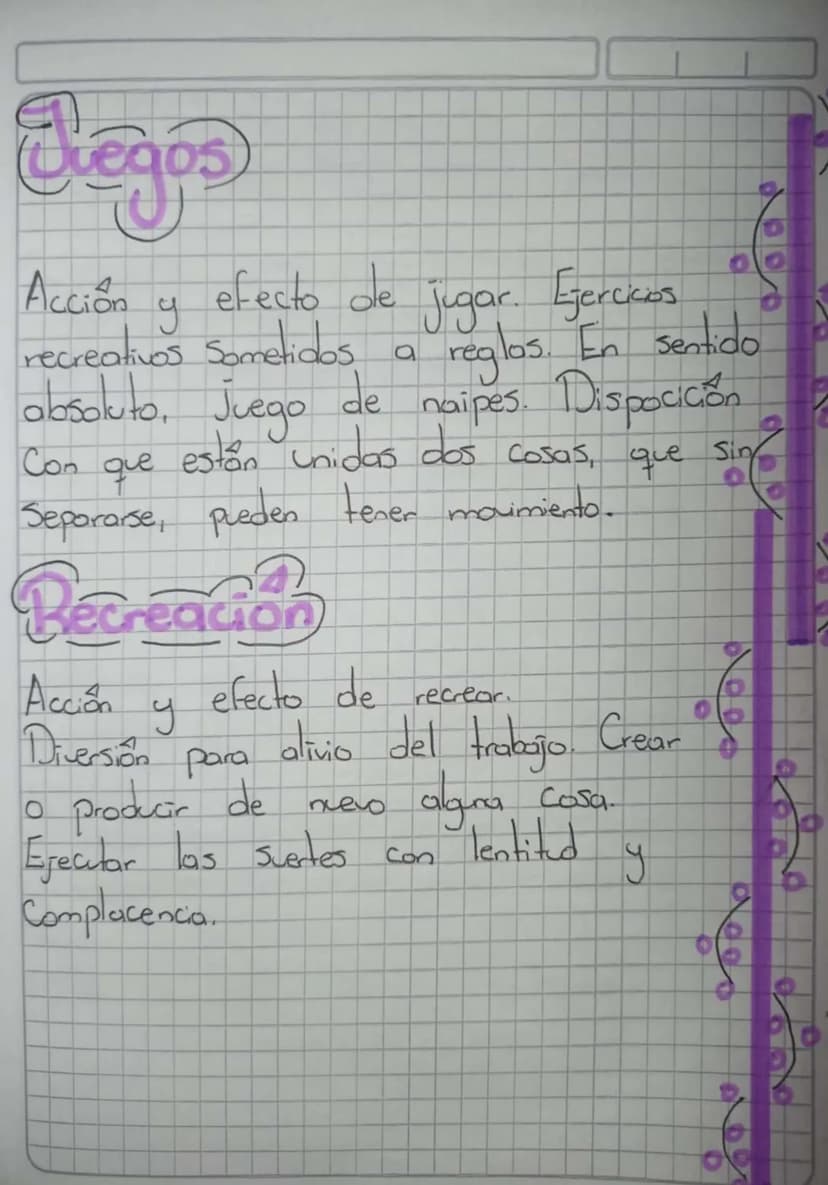 Juegos
Acción y efecto de jugar. Ejercicios
recreativos Sometidos a reglas. En sentido
absoluto, juego de naipes. Dispocición
Con que están unidas dos cosas, que sin
Separarse, pueden tener movimiento.
Recreación
Acción y efecto de recrear.
Diversión para alivio del trabajo. Crear
o producir de nuevo alguna cosa.
Ejecutar las suertes con lentitud y
Complacencia.